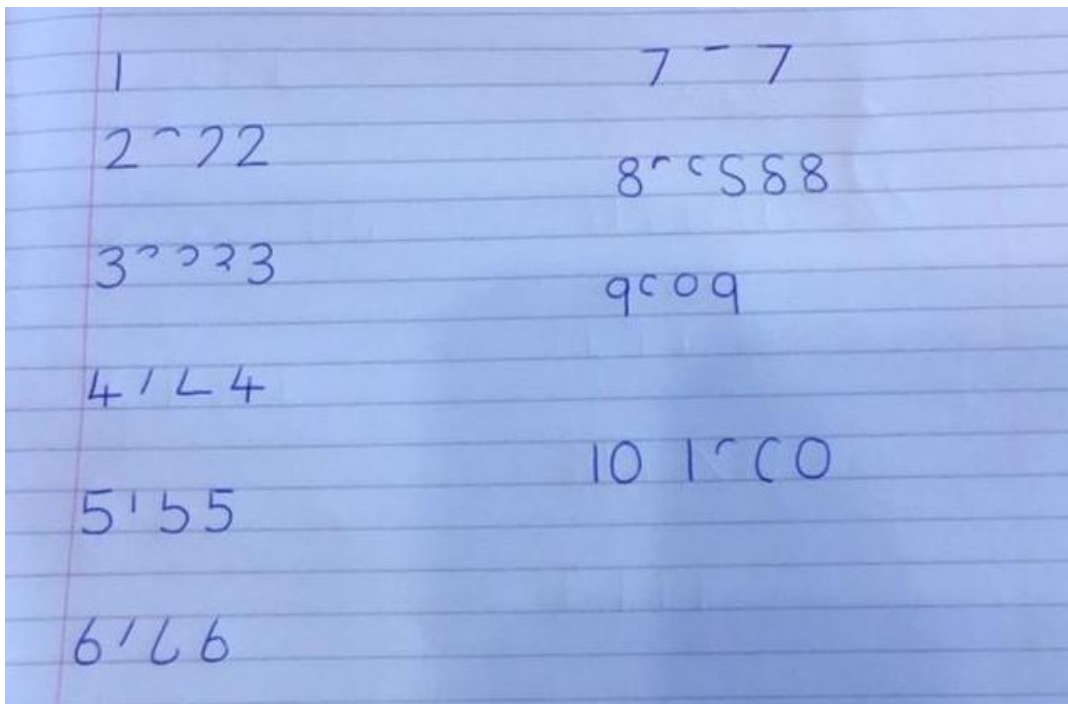 1
2 ⌒ ? 2
3 ⌒ ɔ ? 3
4 / L 4
5 ' b 5
6 / L 6
7 - 7
8 ⌒ c S 8 8
9 c o 9
10 1 ⌒ ( 0